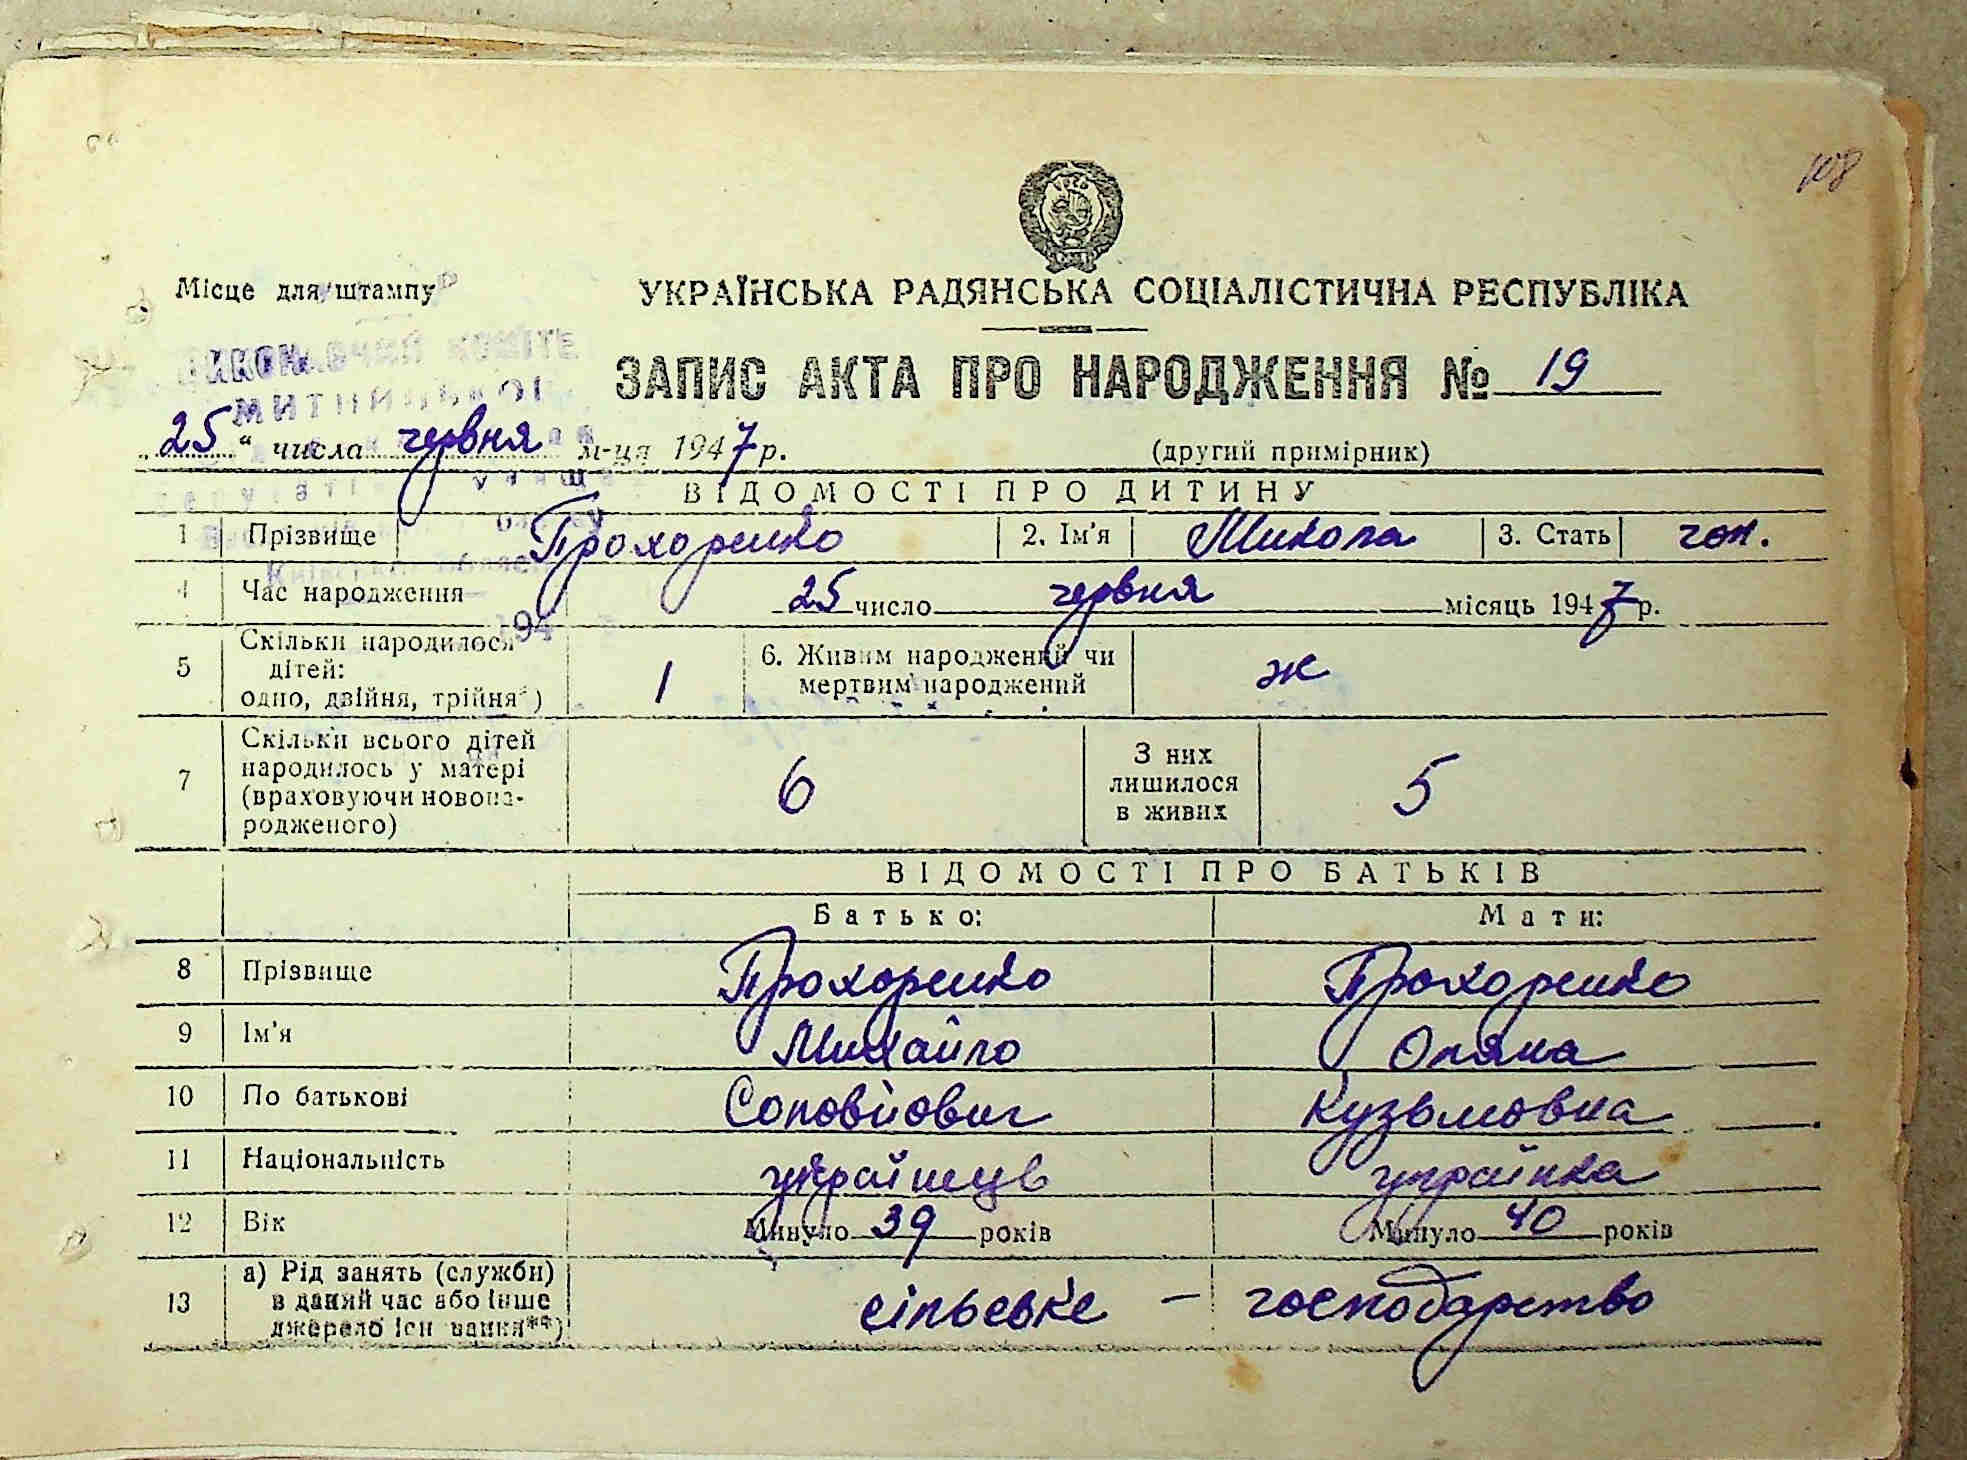 108
Місце для штампу
УКРАЇНСЬКА РАДЯНСЬКА СОЦІАЛІСТИЧНА РЕСПУБЛІКА
ЗАПИС АКТА ПРО НАРОДЖЕННЯ № 19
„25“ числа червня м-ця 1947 р.
(другий примірник)
ВІДОМОСТІ ПРО ДИТИНУ
1 Прізвище Прохоренко 2. Ім'я Микола 3. Стать чол.
4 Час народження 25 число червня місяць 1947 р.
5 Скільки народилося дітей: одно, двійня, трійня*) 1 6. Живим народжений чи мертвим народжений ж
7 Скільки всього дітей народилось у матері (враховуючи новонародженого) 6 З них лишилося в живих 5
ВІДОМОСТІ ПРО БАТЬКІВ
Батько: Мати:
8 Прізвище Прохоренко Прохоренко
9 Ім'я Михайло Оляна
10 По батькові Соловйович Кузьмовна
11 Національність українець українка
12 Вік Минуло 39 років Минуло 40 років
13 а) Рід занять (служби) в даний час або інше джерело існування**) сільське – господарство